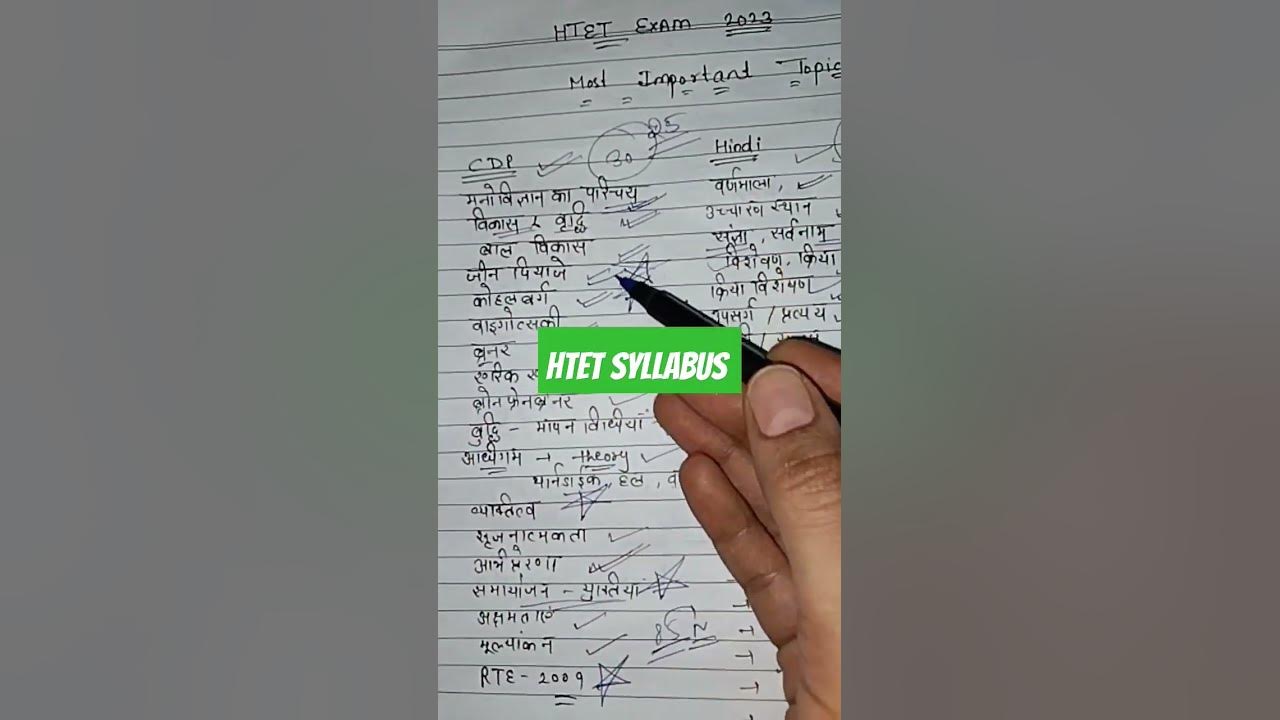 HTET EXAM 2023
Most Important Topic
CDP
30
25
मनोविज्ञान का परिचय
विकास & वृद्धि
बाल विकास
जीन पियाजे
कोहलबर्ग
वाइगोत्सकी
ब्रूनर
एरिक
ब्रोनफ्रेनब्रेनर
बुद्धि - मापन विधियाँ
अधिगम → Theory
थार्नडाईक, हल,
व्यक्तित्व
सृजनात्मकता
अभिप्रेरणा
समायोजन - युक्तियां
अक्षमताएं
मूल्यांकन
RTE - 2009
Hindi
वर्णमाला,
उच्चारण स्थान
संज्ञा, सर्वनाम
विशेषण, क्रिया
क्रिया विशेषण
उपसर्ग / प्रत्यय
HTET SYLLABUS